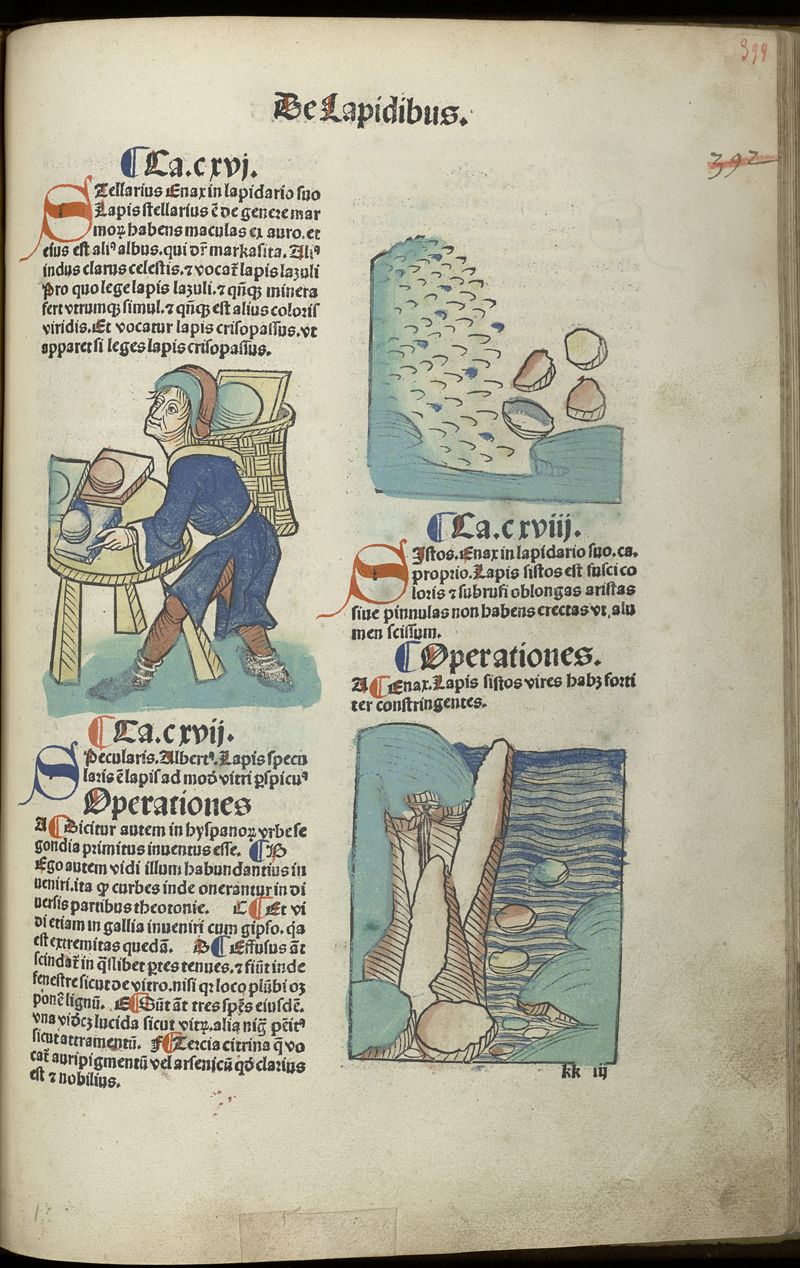 399
De Lapidibus.
392
¶ Ca. cxvj.
STellarius Enax in lapidario suo
Lapis stellarius ē de genere mar
moꝝ habens maculas ex auro. et
eius est aliꝰ albus. qui dr̄ markasita. Aliꝰ
indus clarus celestis. ⁊ vocat̄ lapis lazuli
Pro quo lege lapis lazuli. ⁊ qn̄qꝫ minera
fert vtrumqꝫ simul. ⁊ qn̄qꝫ est alius coloris
viridis. Et vocatur lapis crisopassus. vt
apparet si leges lapis crisopassus.
¶ Ca. cxvij.
SPecularis. Albertꝰ. Lapis specu
laris ē lapis ad modū vitri ꝑspicuꝰ
Operationes
A ¶ Dicitur autem in hyspanoꝝ vrbe se
gondia primitus inuentus esse. ¶ B
Ego autem vidi illum habundantius in
ueniri. ita ꝙ curbes inde onerantur in di
uersis partibus theotonie. C ¶ Et vi
di etiam in gallia inueniri cum gipso. q̄a
est extremitas quedā. D ¶ Effusus āt
scindat̄ in qͣslibet ꝑtes tenues. ⁊ fiūt inde
fenestre sicut de vitro. nisi qꝛ loco plūbi oꝫ
ponē lignū. E ¶ Sūt āt tres sp̄es eiusdē.
vna vidꝫ lucida sicut vitꝝ. alia nigͣ pēitꝰ
sicut attramentū. F ¶ Tercia citrina q̄ vo
cat̄ auripigmentū vel arsenicū qd̄ clarius
est ⁊ nobilius.
¶ Ca. cxviij.
SIstos. Enax in lapidario suo. ca.
proprio. Lapis sistos est fusci co
loris ⁊ subrufi oblongas aristas
siue pinnulas non habens erectas vt. alu
men scissum.
¶ Operationes.
A ¶ Enax. Lapis sistos vires habꝫ forti
ter constringentes.
kk iij